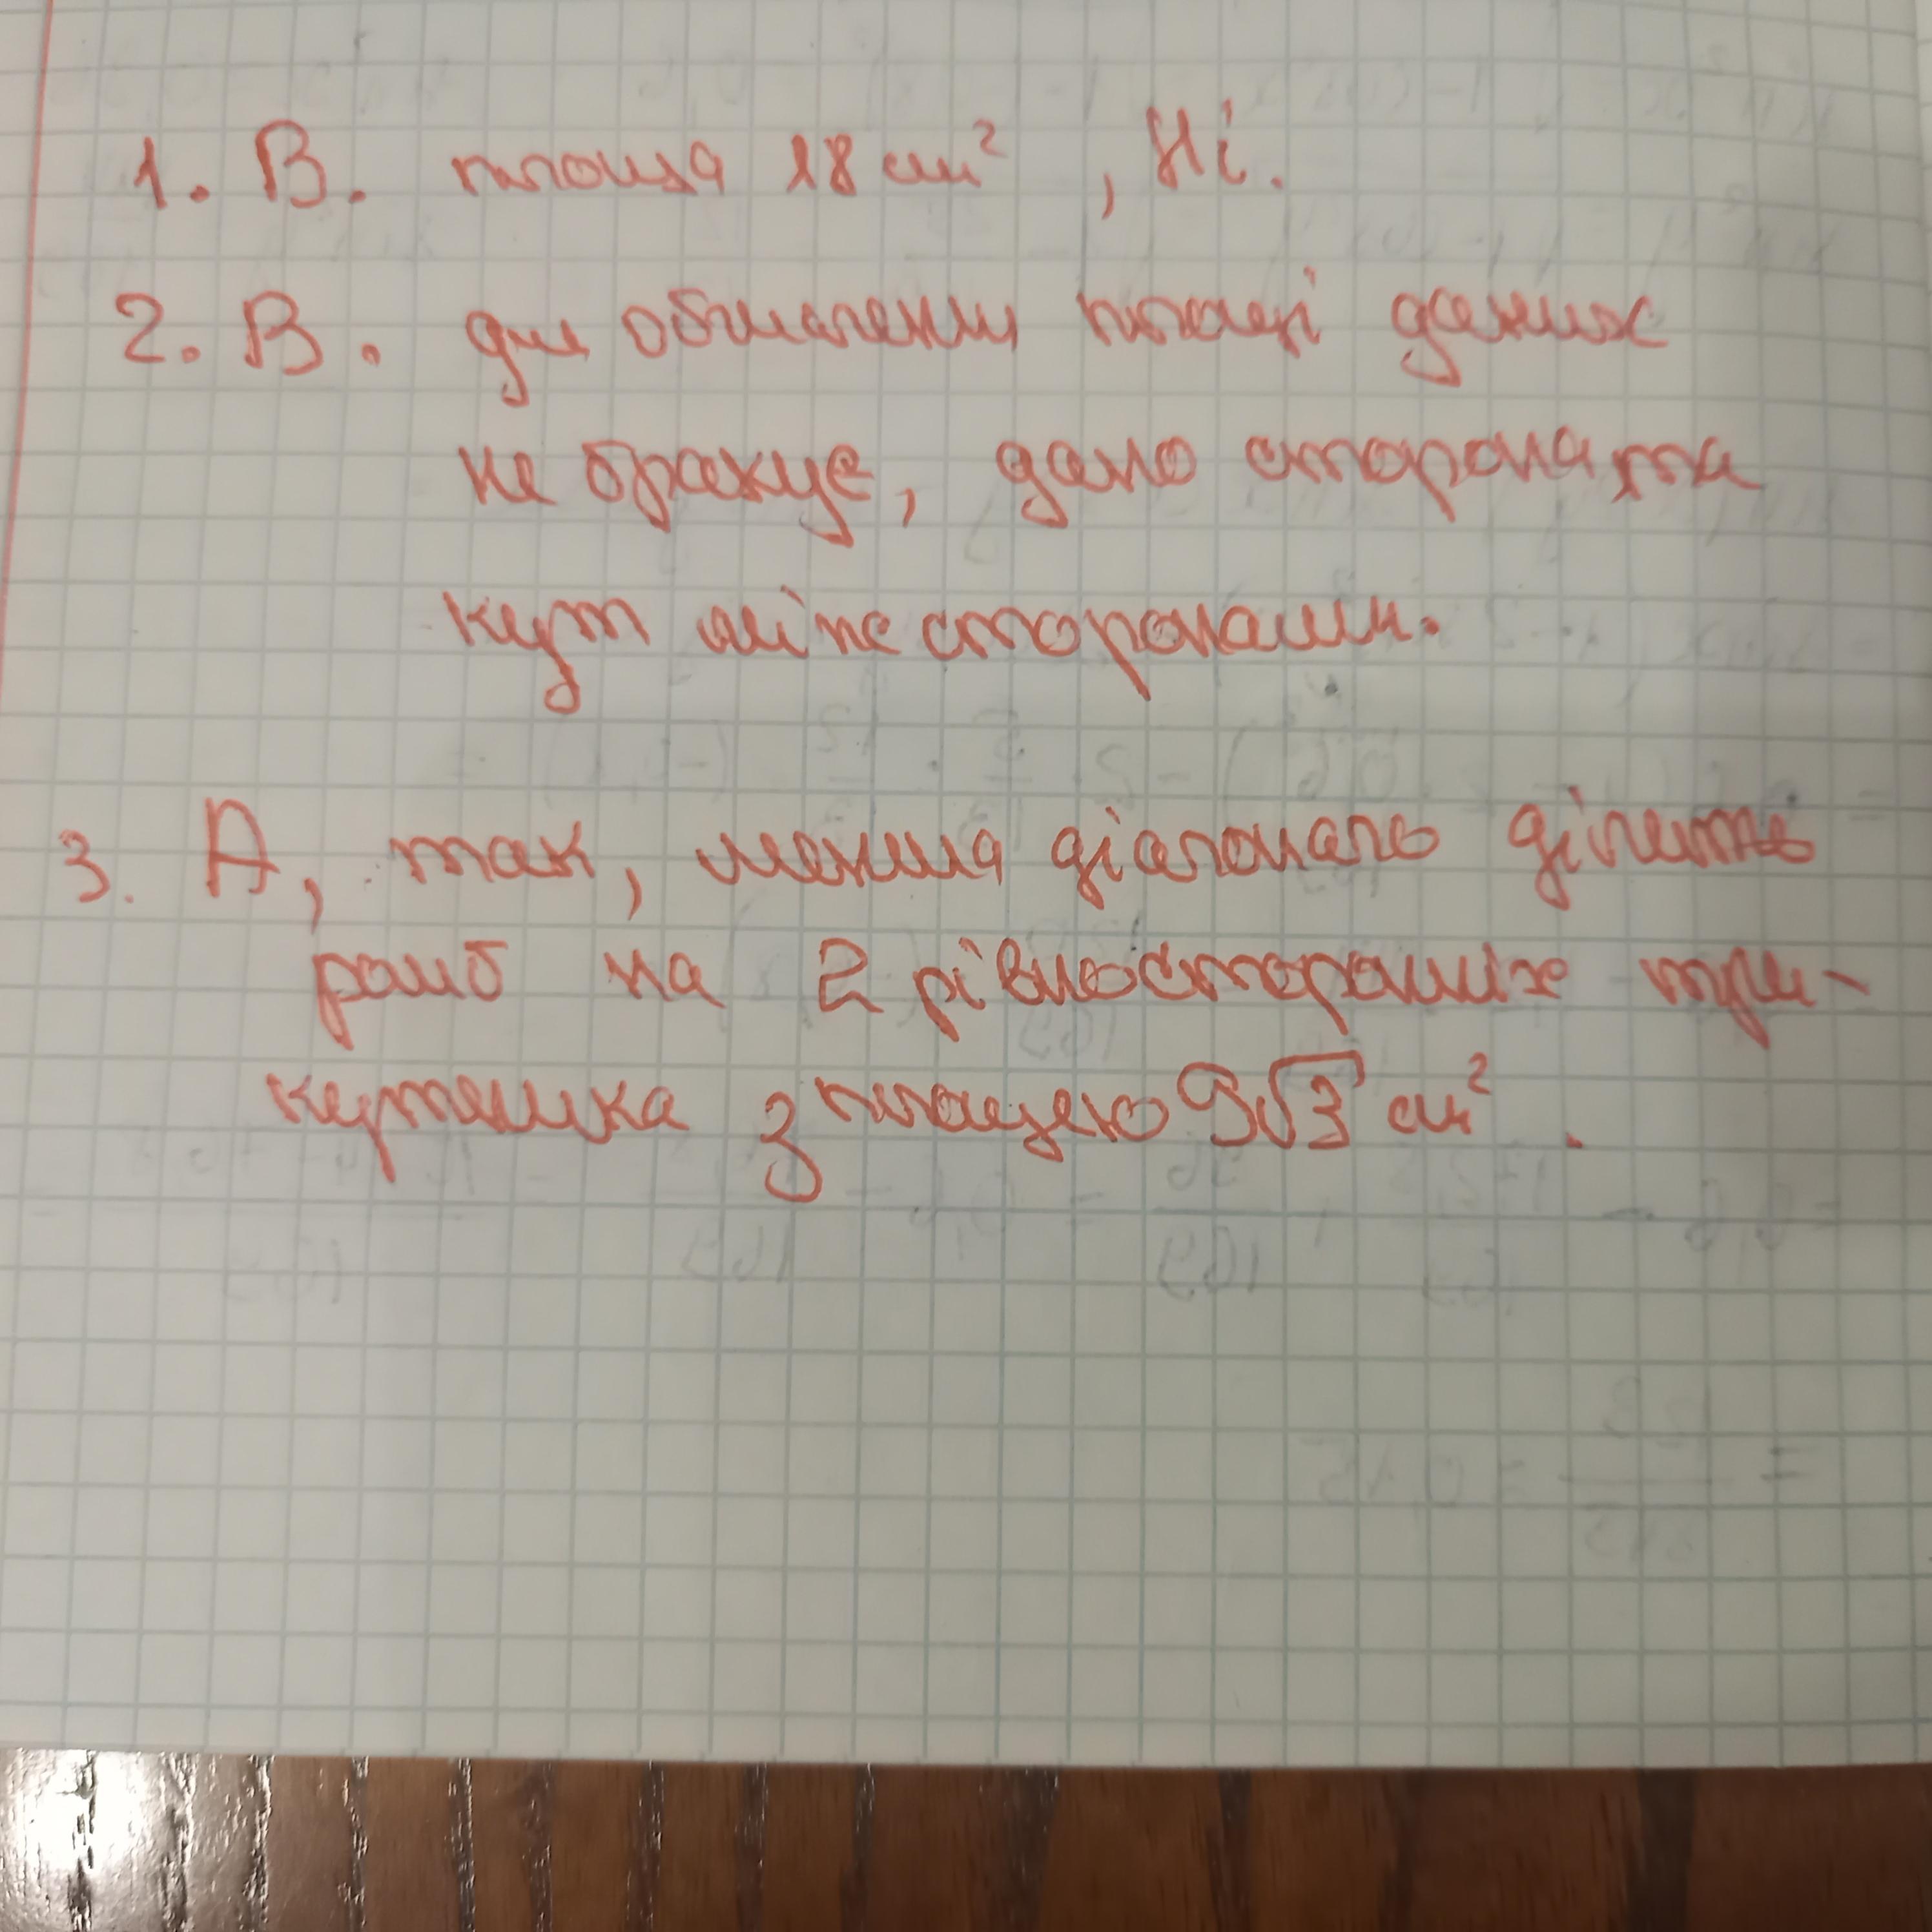 1. В. площа 18 см² , Ні.
2. В. для обчислення площі даних
не бракує, дано сторона та
кут між сторонами.
3. А, так, менша діагональ ділить
ромб на 2 рівносторонніх три-
кутника з площею 9√3 см² .